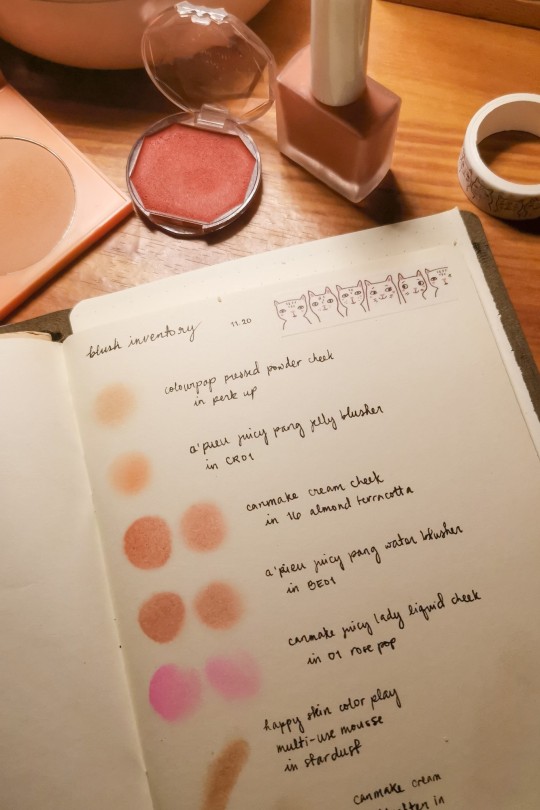 blush inventory 11.20
colourpop pressed powder cheek
in perk up
a'pieu juicy pang jelly blusher
in CR01
canmake cream cheek
in 16 almond terracotta
a'pieu juicy pang water blusher
in BE01
canmake juicy lady liquid cheek
in 01 rose pop
happy skin color play
multi-use mousse
in stardust
canmake cream
in